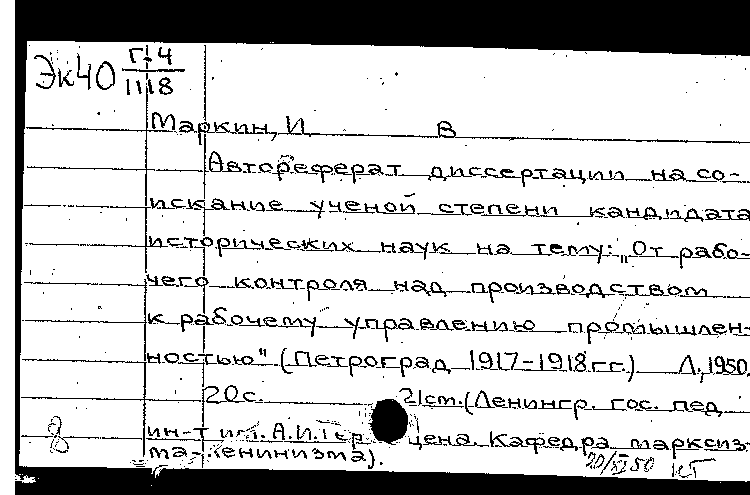 Эк40 Г-4
1118
Маркин, И. В
Автореферат диссертации на со-
искание ученой степени кандидата
исторических наук на тему: „От рабо-
чего контроля над производством
к рабочему управлению промышлен-
ностью" (Петроград 1917-1918 г.г.) Л., 1950.
20с. 21см. (Ленингр. гос. пед
ин-т им. А.И. Гер цена. Кафедра марксиз-
ма-ленинизма).
8
20/XI 50